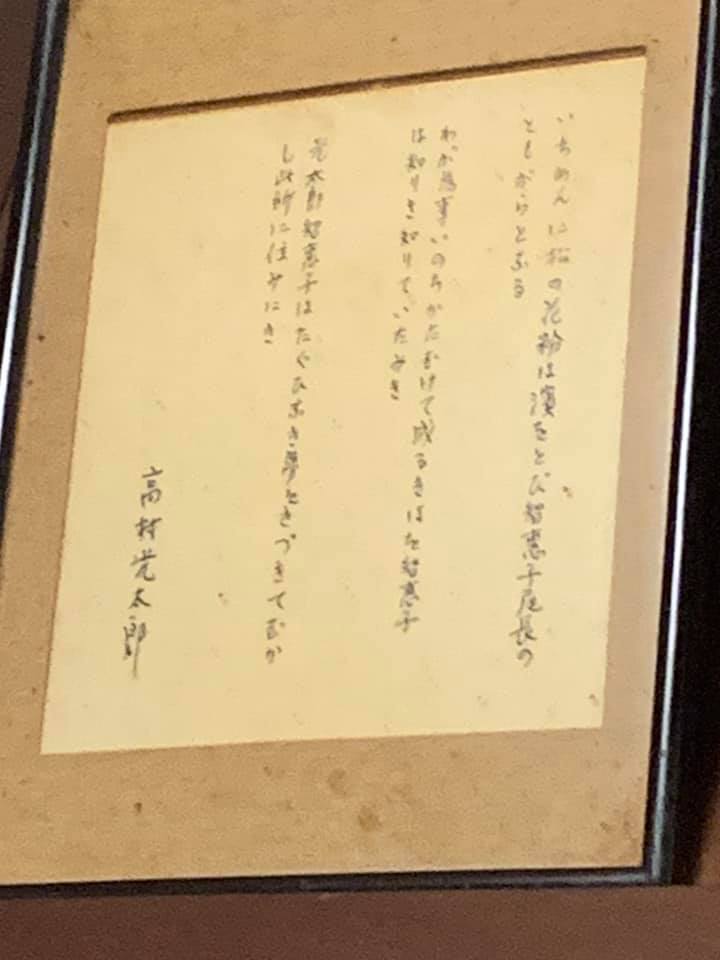 いちめんに松の花粉は濱をとび智恵子尾長の
ともがらとなる
わが為事いのちかたむけて成るきはを智恵子
は知りき知りていたみき
光太郎智恵子はたぐひなき夢をきづきてむか
し此所に住みにき
高村光太郎